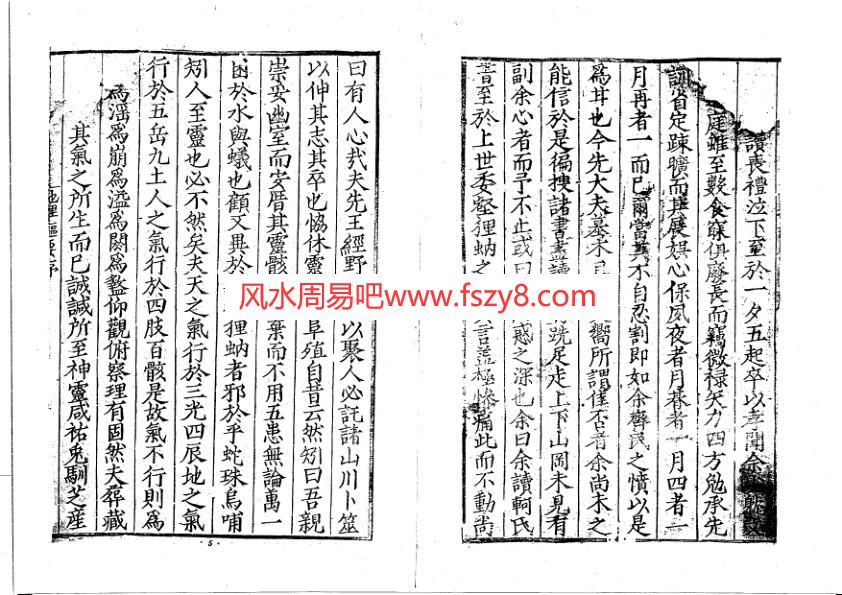 讀喪禮泣下至於一夕五起卒以孝聞余
庭雖至數食寐俱廢長而竊微祿矢力四方勉承先
訓省定踈曠而其展娯心保夙夜者月者一月四者一
月再者一而已爾當其不自忍割即如余齊民之憤以是
為耳也今先大夫墓木嚮所謂僅不余尚未之
能信於是徧搜諸書盡讀跣足走上下山岡未見有
副余心者而予不止或曰惑之深也余曰余讀軻氏
書至於上世委壑狸蚋之言盖極慘痛此而不動尚
曰有人心㢤夫先王經野以聚人必託諸山川卜筮
以伸其志其卒也恊休靈阜殖自昔云然矧曰吾親
崇妥幽室而安厝其靈骸棄而不用五患無論萬一
困於水與蟻也顧又異於狸蚋者邪於乎蛇珠烏哺
矧人至靈也必不然矣夫天之氣行於三光四辰地之氣
行於五岳九土人之氣行於四肢百骸是故氣不行則為
為滛為崩為溢為閼為盩仰觀俯察理有固然夫葬藏
其氣之所生而已誠誠所至神靈咸祐兎馴芝産
·5·
风水周易吧www.fszy8.com